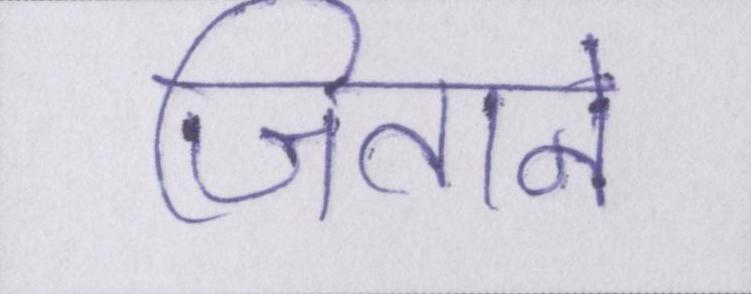 जिताने